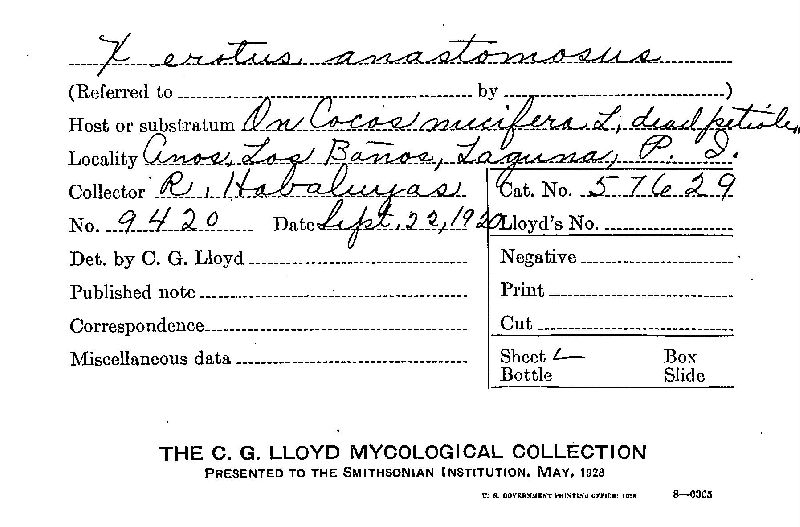 Xerotus anastomosus
(Referred to by )
Host or substratum On Cocos nucifera L, dead petiole,
Locality Anos, Los Baños, Laguna, P. I.
Collector R. Habaluyas
Cat. No. 57629
No. 9420 Date Sept. 22, 1920
Lloyd's No.
Det. by C. G. Lloyd
Negative
Published note
Print
Correspondence
Cut
Miscellaneous data
Sheet Box
Bottle Slide
THE C. G. LLOYD MYCOLOGICAL COLLECTION
PRESENTED TO THE SMITHSONIAN INSTITUTION, MAY, 1928
U. S. GOVERNMENT PRINTING OFFICE: 1928 8—6305